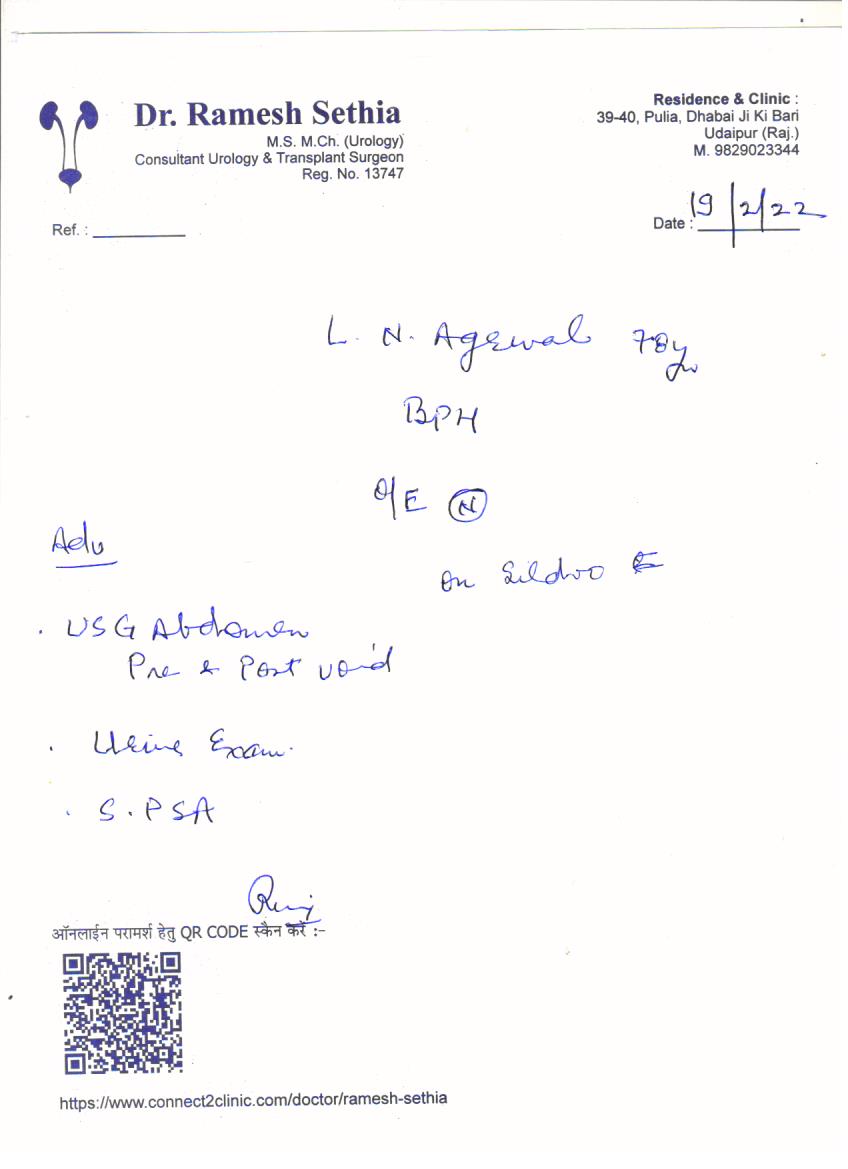 Dr. Ramesh Sethia
M.S. M.Ch. (Urology)
Consultant Urology & Transplant Surgeon
Reg. No. 13747
Residence & Clinic :
39-40, Pulia, Dhabai Ji Ki Bari
Udaipur (Raj.)
M. 9829023344
Ref. :
Date : 19/2/22
L. N. Agrwal 78y
BPH
O/E N
Adv
On Sildoo
. USG Abdomen
Pre & Post void
. Urine Exam.
. S. PSA
ऑनलाईन परामर्श हेतु QR CODE स्कैन करें :-
https://www.connect2clinic.com/doctor/ramesh-sethia